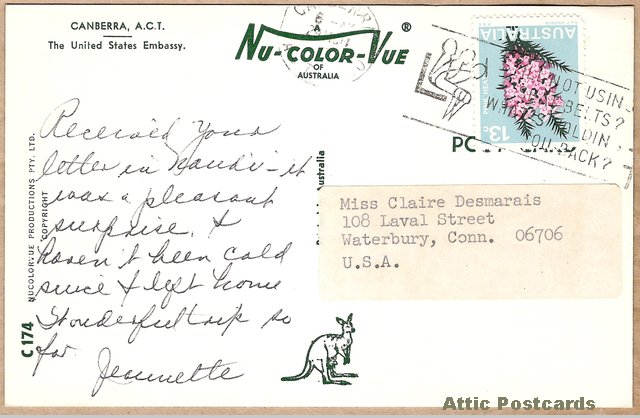 CANBERRA, A.C.T.
The United States Embassy.
A
NU-COLOR-VUE ®
OF
AUSTRALIA
AUSTRALIA
13c
NOT USING
BELTS?
WHAT'S HOLDIN
YOU BACK?
Received your
letter in Nandi - it
was a pleasant
surprise. I
haven't been cold
since I left home
Wonderful trip so
far
Jeannette
NUCOLORVUE PRODUCTIONS PTY. LTD.
COPYRIGHT
C174
Australia
Miss Claire Desmarais
108 Laval Street
Waterbury, Conn. 06706
U.S.A.
Attic Postcards